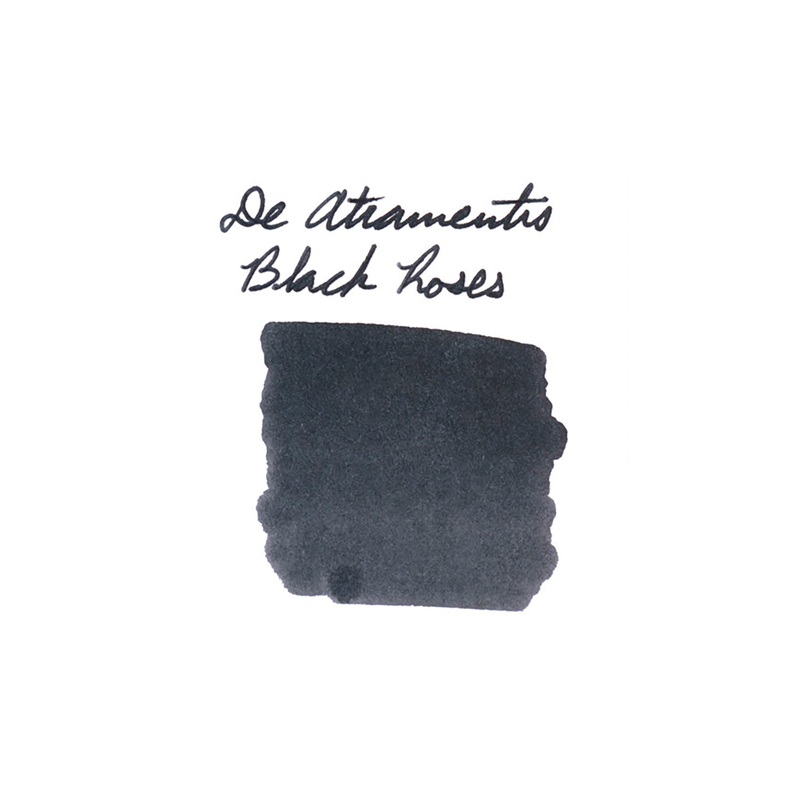 De Atramentis
Black Roses